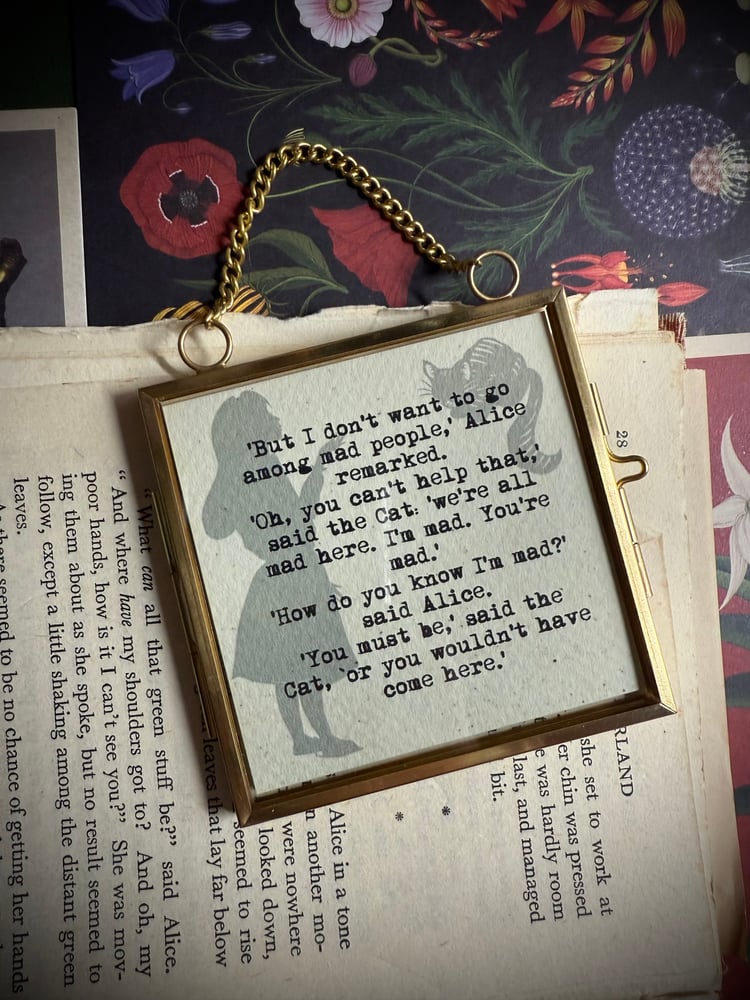 'But I don't want to go
among mad people,' Alice
remarked.
'Oh, you can't help that,'
said the Cat: 'we're all
mad here. I'm mad. You're
mad.'
'How do you know I'm mad?'
said Alice.
'You must be,' said the
Cat, 'or you wouldn't have
come here.'
28
RLAND
she set to work at
er chin was pressed
e was hardly room
last, and managed
bit.
* *
Alice in a tone
n another mo-
were nowhere
looked down,
seemed to rise
leaves that lay far below
“ What can all that green stuff be?” said Alice.
“ And where have my shoulders got to? And oh, my
poor hands, how is it I can't see you?” She was mov-
ing them about as she spoke, but no result seemed to
follow, except a little shaking among the distant green
leaves.
As there seemed to be no chance of getting her hands